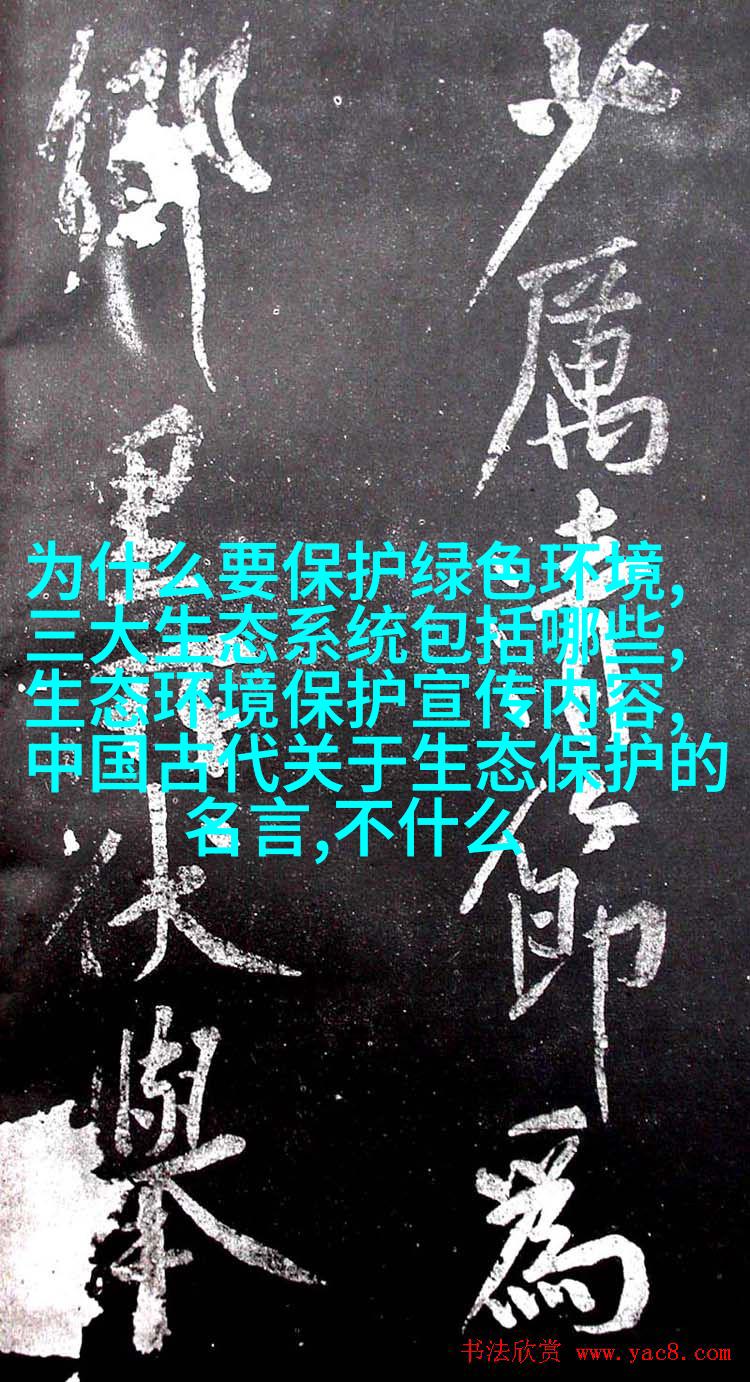 少厲清節為
鄉里所伏舉
为什么要保护绿色环境,
三大生态系统包括哪些,
生态环境保护宣传内容,
中国古代关于生态保护的
名言,不什么
书法欣赏 www.yac8.com